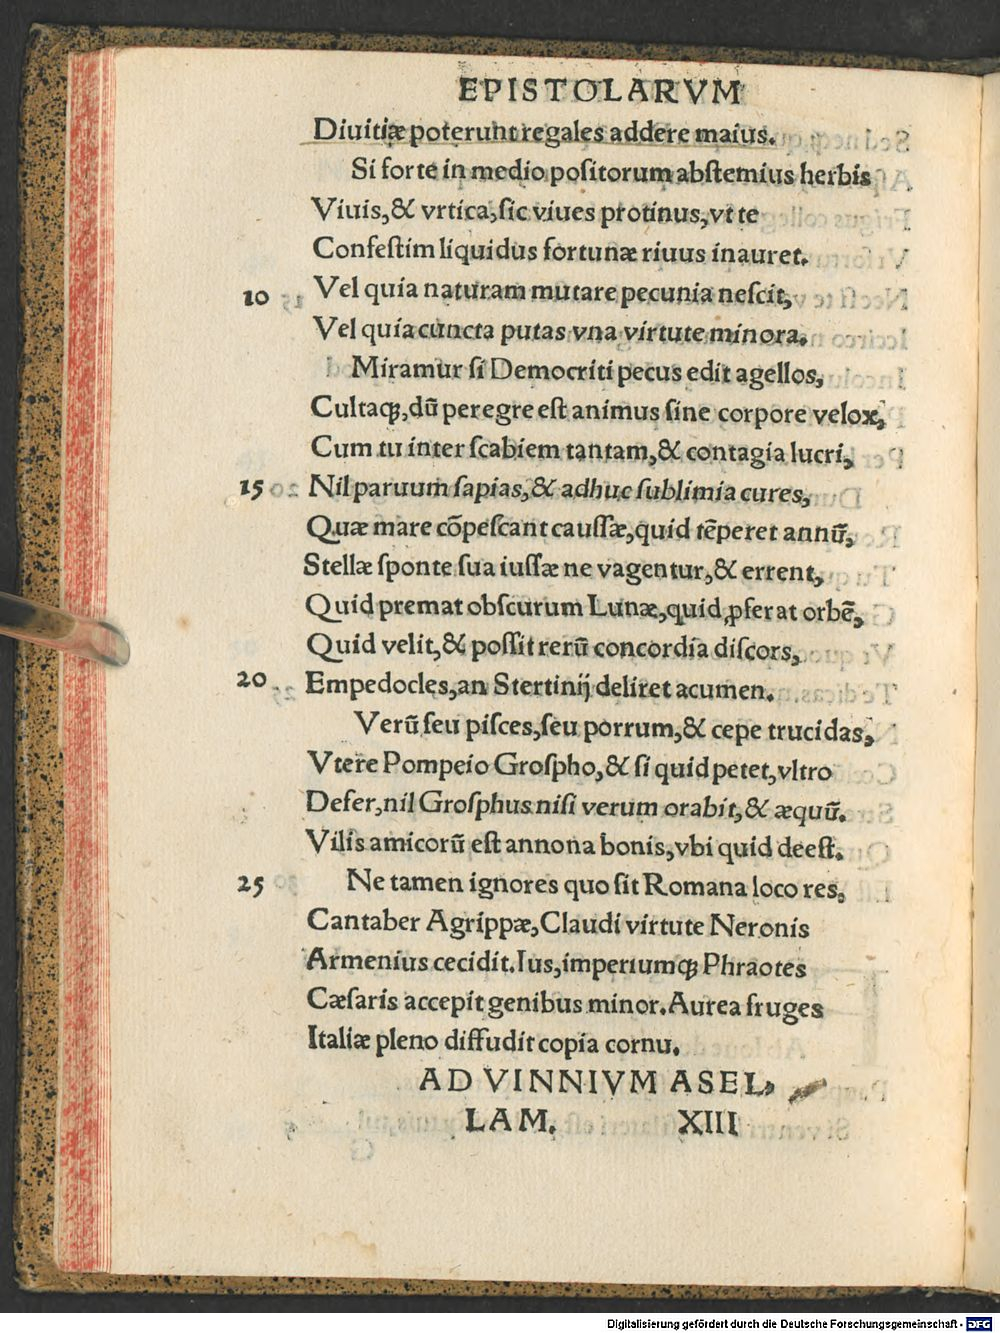 EPISTOLARVM
Diuitiæ poterunt regales addere maius.
Si forte in medio poſitorum abſtemius herbis
Viuis,& vrtica,ſic viues protinus,vt te
Confeſtim liquidus fortunæ riuus inauret.
10 Vel quia naturam mutare pecunia neſcit,
Vel quia cuncta putas vna virtute minora.
Miramur ſi Democriti pecus edit agellos,
Cultaqꝫ,dũ peregre eſt animus ſine corpore velox,
Cum tu inter ſcabiem tantam,& contagia lucri,
15 Nil paruum ſapias,& adhuc ſublimia cures,
Quæ mare cõpeſcant cauſſæ,quid tẽperet annũ,
Stellæ ſponte ſua iuſſæ ne vagentur,& errent,
Quid premat obſcurum Lunæ,quid ꝓferat orbẽ,
Quid velit,& poſſit rerũ concordia diſcors,
20 Empedocles,an Stertinij deliret acumen.
Verũ ſeu piſces,ſeu porrum,& cepe trucidas,
Vtere Pompeio Groſpho,& ſi quid petet,vltro
Defer,nil Groſphus niſi verum orabit,& æquũ.
Vilis amicorũ eſt annona bonis,vbi quid deeſt.
25 Ne tamen ignores quo ſit Romana loco res,
Cantaber Agrippæ,Claudi virtute Neronis
Armenius cecidit.Ius,imperiumqꝫ Phraotes
Cæſaris accepit genibus minor.Aurea fruges
Italiæ pleno diffudit copia cornu.
AD VINNIVM ASEL,
LAM. XIII
Digitalisierung gefördert durch die Deutsche Forschungsgemeinschaft - DFG